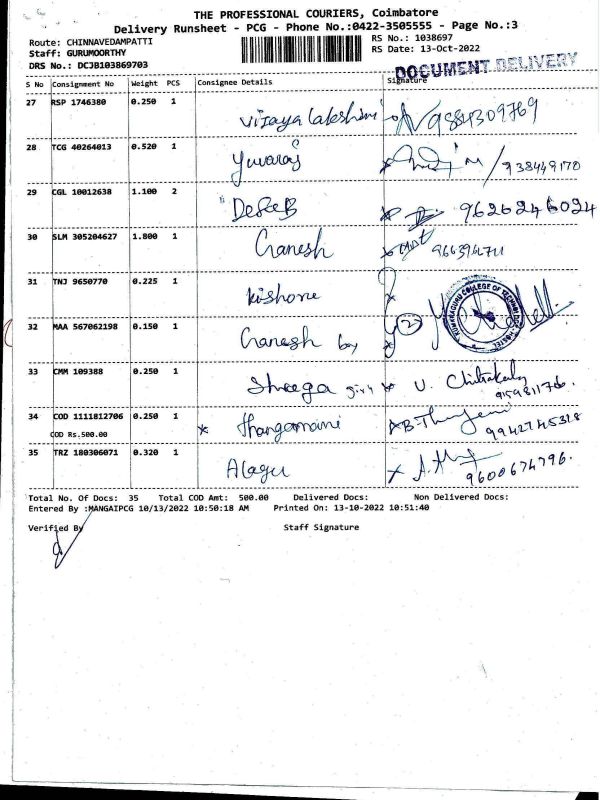 THE PROFESSIONAL COURIERS, Coimbatore
Delivery Runsheet - PCG - Phone No.:0422-3505555 - Page No.:3
Route: CHINNAVEDAMPATTI RS No.: 1038697
Staff: GURUMOORTHY RS Date: 13-Oct-2022
DRS No.: DCJB103869703
DOCUMENT DELIVERY
S No Consignment No Weight PCS Consignee Details Signature
27 RSP 1746380 0.250 1 Vijaya Lakshmi 9884309769
28 TCG 40264013 0.520 1 Yuvaraj /938449170
29 CGL 10012638 1.100 2 9626246024
30 SLM 305204627 1.800 1 Ganesh
31 TNJ 9650770 0.225 1 Kishore
32 MAA 567062198 0.150 1 Ganesh boy 2
KUMARAGURU COLLEGE OF TECHNOLOGY HOSTEL
33 CMM 109388 0.250 1 girl
34 COD 1111812706 0.250 1 Thangamani
COD Rs.500.00 9942745328
35 TRZ 180306071 0.320 1 Alagu 9600674796.
Total No. Of Docs: 35 Total COD Amt: 500.00 Delivered Docs: Non Delivered Docs:
Entered By :MANGAIPCG 10/13/2022 10:50:18 AM Printed On: 13-10-2022 10:51:40
Verified By Staff Signature